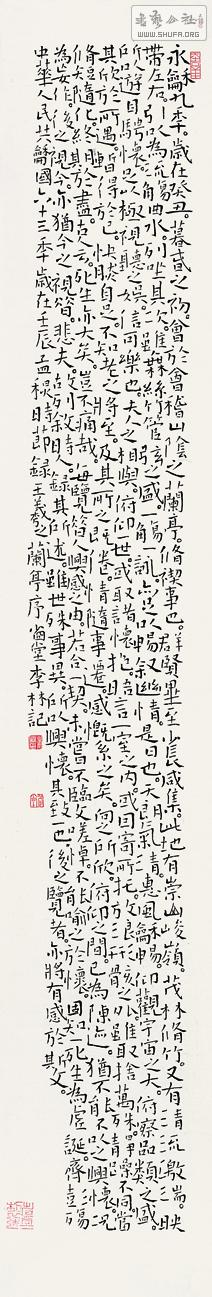 书艺公社
WWW.SHUFA.ORG
永龢九年歲在癸丑暮春之初會於會稽山陰之蘭亭脩禊事也羣賢畢至少長咸集此地有崇山峻嶺茂林脩竹又有清流激湍映
帶左右引以為流觴曲水列坐其次雖無絲竹管弦之盛一觴一詠亦足以暢敘幽情是日也天朗氣清惠風龢暢仰觀宇宙之大俯察品類之盛
所以遊目騁懷足以極視聽之娛信可樂也夫人之相與俯仰一世或取諸懷抱悟言一室之內或因寄所託放浪形骸之外雖取捨萬殊靜躁不同當
其欣於所遇暫得於己快然自足不知老之將至及其所之既倦情隨事遷感慨係之矣向之所欣俯仰之間已為陳迹猶不能不以之興懷況
脩短隨化終期於盡古人云死生亦大矣豈不痛哉每覽昔人興感之由若合一契未嘗不臨文嗟悼不能喻之於懷固知一死生為虛誕齊彭殤
為妄作後之視今亦猶今之視昔悲夫故列敘時人錄其所述雖世殊事異所以興懷其致一也後之覽者亦將有感於其文
中華人民共龢國六十三年歲在壬辰孟穐時節錄王羲之蘭亭序堂李林記